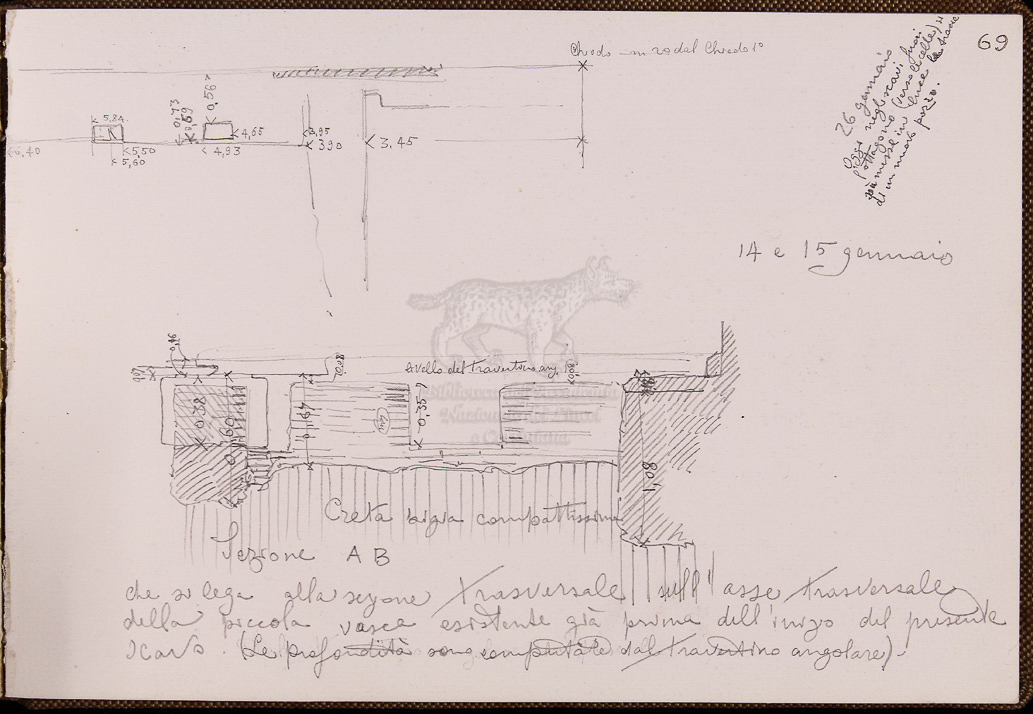 69
Chiodo - m 20 dal Chiodo 1°
26 gennaio
Oggi negli scavi fuori
l'ottagono (verso le celle) si
è messa in luce la traccia
di un nuovo pozzo.
0,56
0,73
0,59
5,84
4,65
3,95
6,40
5,50
4,93
390
3,45
5,60
14 e 15 gennaio
0,16
0,08
Livello del travertino ang. 1°
0,08
Biblioteca
Nazionale dei Lincei
e Corsiniana
0,38
0,60
0,67
0,35
1,08
Creta bigia compattissima
Sezione A B
che si lega alla sezione trasversale sull'asse trasversale
della piccola vasca esistente già prima dell'inizio del presente
scavo. (Le profondità sono computate dal travertino angolare).